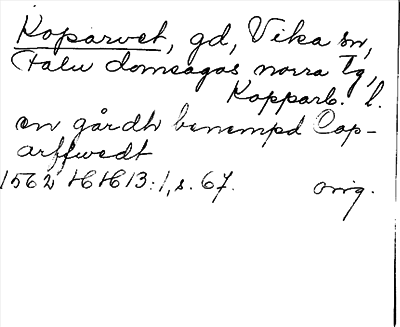 Koparvet, gd, Vika sn,
Falu domsagas norra tg,
Kopparb. l.
en gårdh benempd Cop-
arffwedt
1562 HH 13:1, s. 67. orig.